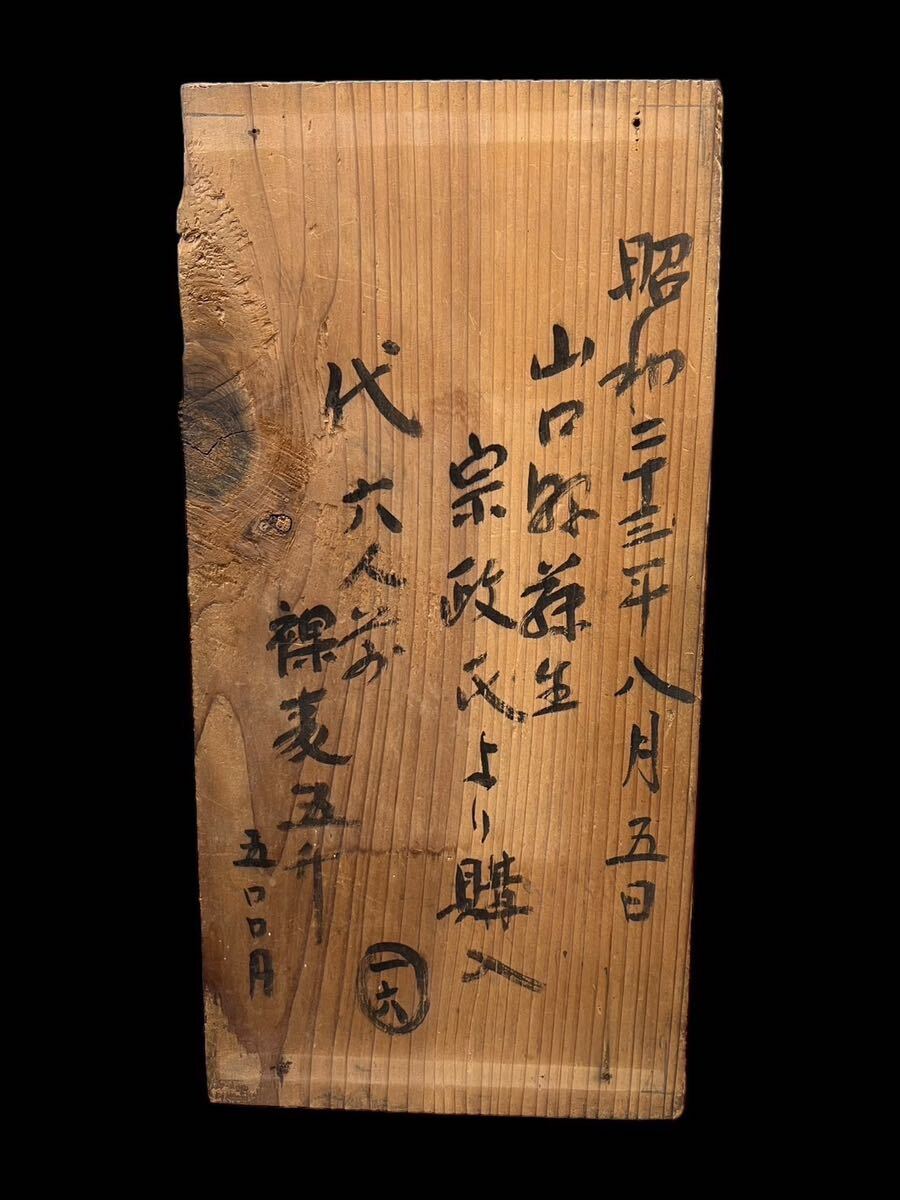 昭和二十三年八月五日
山口縣萩生
宗政氏より購入
代六人前
裸麦五升
五〇〇円
一六